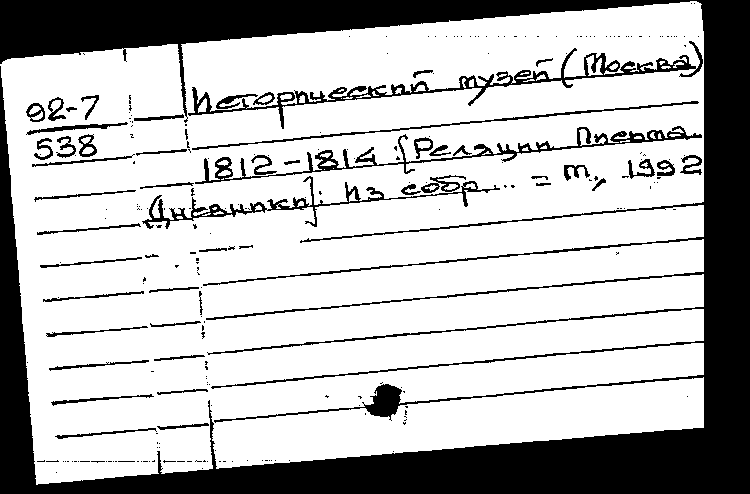 92-7
538
Исторический музей (Москва)
1812-1814: [Реляции Письма
Дневники]: Из собр.... = М., 1992